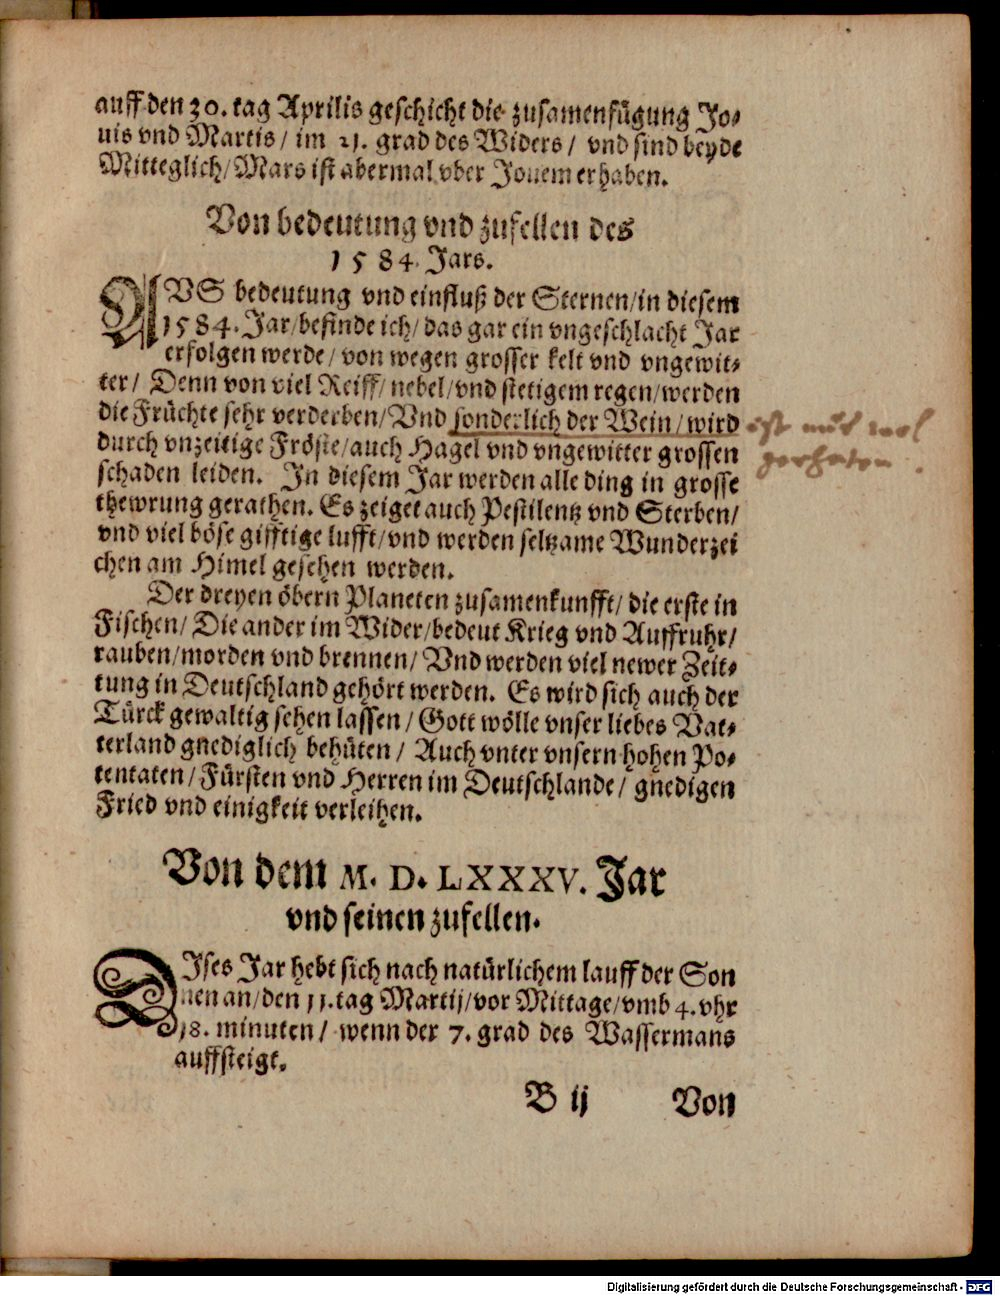 auff den 30. tag Aprilis geschicht die zusamenfügung Jo-
uis vnd Martis / im 21. grad des Widers / vnd sind beyde
Mitteglich / Mars ist abermal vber Jouem erhaben.
Von bedeutung vnd zufellen des
1584. Jars.
AVS bedeutung vnd einfluß der Sternen / in diesem
1584. Jar / befinde ich / das gar ein vngeschlacht Jar
erfolgen werde / von wegen grosser kelt vnd vngewit-
ter / Denn von viel Reiff / nebel / vnd stetigem regen / werden
die Früchte sehr verderben / Vnd sonderlich der Wein / wird
ist nur wol
durch vnzeitige Fröste / auch Hagel vnd vngewitter grossen
gerhaten.
schaden leiden. In diesem Jar werden alle ding in grosse
thewrung gerathen. Es zeiget auch Pestilentz vnd Sterben /
vnd viel böse gifftige lufft / vnd werden seltzame Wunderzei
chen am Himel gesehen werden.
Der dreyen öbern Planeten zusamenkunfft / die erste in
Fischen / Die ander im Wider / bedeut Krieg vnd Auffruhr /
rauben / morden vnd brennen / Vnd werden viel newer Zeit-
tung in Deutschland gehört werden. Es wird sich auch der
Türck gewaltig sehen lassen / Gott wölle vnser liebes Vat-
terland gnediglich behüten / Auch vnter vnsern hohen Po-
tentaten / Fürsten vnd Herren im Deutschlande / gnedigen
Fried vnd einigkeit verleihen.
Von dem M. D. LXXXV. Jar
vnd seinen zufellen.
DIses Jar hebt sich nach natürlichem lauff der Son
nen an / den 11. tag Martij / vor Mittage / vmb 4. vhr
18. minuten / wenn der 7. grad des Wassermans
auffsteigt.
B ij Von
Digitalisierung gefördert durch die Deutsche Forschungsgemeinschaft - DFG